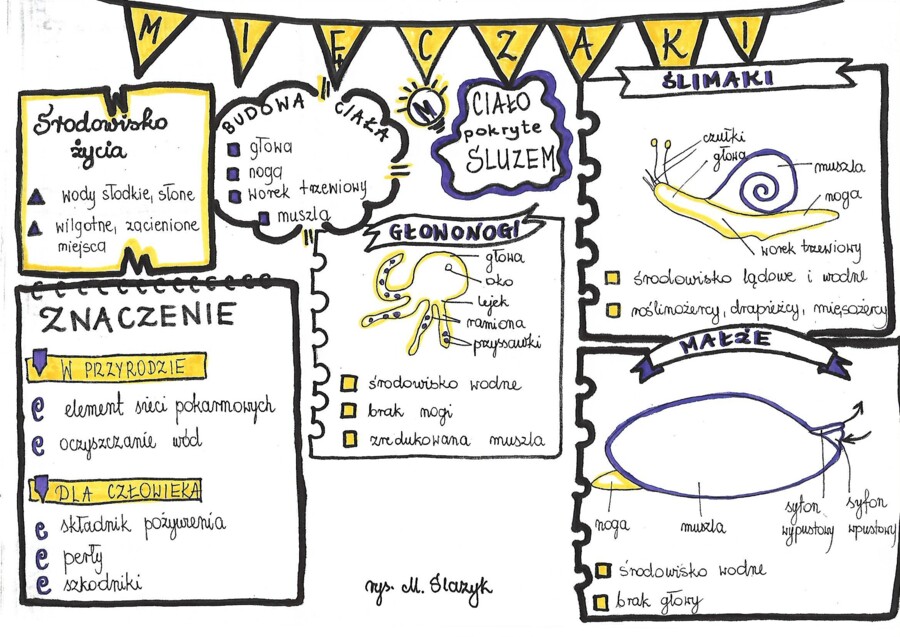 MIĘCZAKI
Środowisko
życia
wody słodkie, słone
wilgotne, zacienione
miejsca
BUDOWA CIAŁA
głowa
noga
worek trzewiowy
muszla
M
CIAŁO
pokryte
ŚLUZEM
ŚLIMAKI
czułki
głowa
muszla
noga
worek trzewiowy
środowisko lądowe i wodne
roślinożercy, drapieżcy, mięsożercy
GŁOWONOGI
głowa
oko
lejek
ramiona
przyssawki
środowisko wodne
brak nogi
zredukowana muszla
ZNACZENIE
W PRZYRODZIE
element sieci pokarmowych
oczyszczanie wód
DLA CZŁOWIEKA
składnik pożywienia
perły
szkodniki
MAŁŻE
noga
muszla
syfon
wypustowy
syfon
wpustowy
środowisko wodne
brak głowy
rys. M. Ślazyk